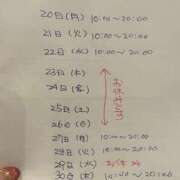 20日(月) 10:00~20:00
21日(火) 10:00~20:00
22日(水) 10:00~20:00
23日(木)
24日(金)
25日(土)
26日(日)
お休みです
27日(月) 10:00~20:00
28日(火) 10:00~20:00
29日(水) お休み
30日(木) 10:00~20:00